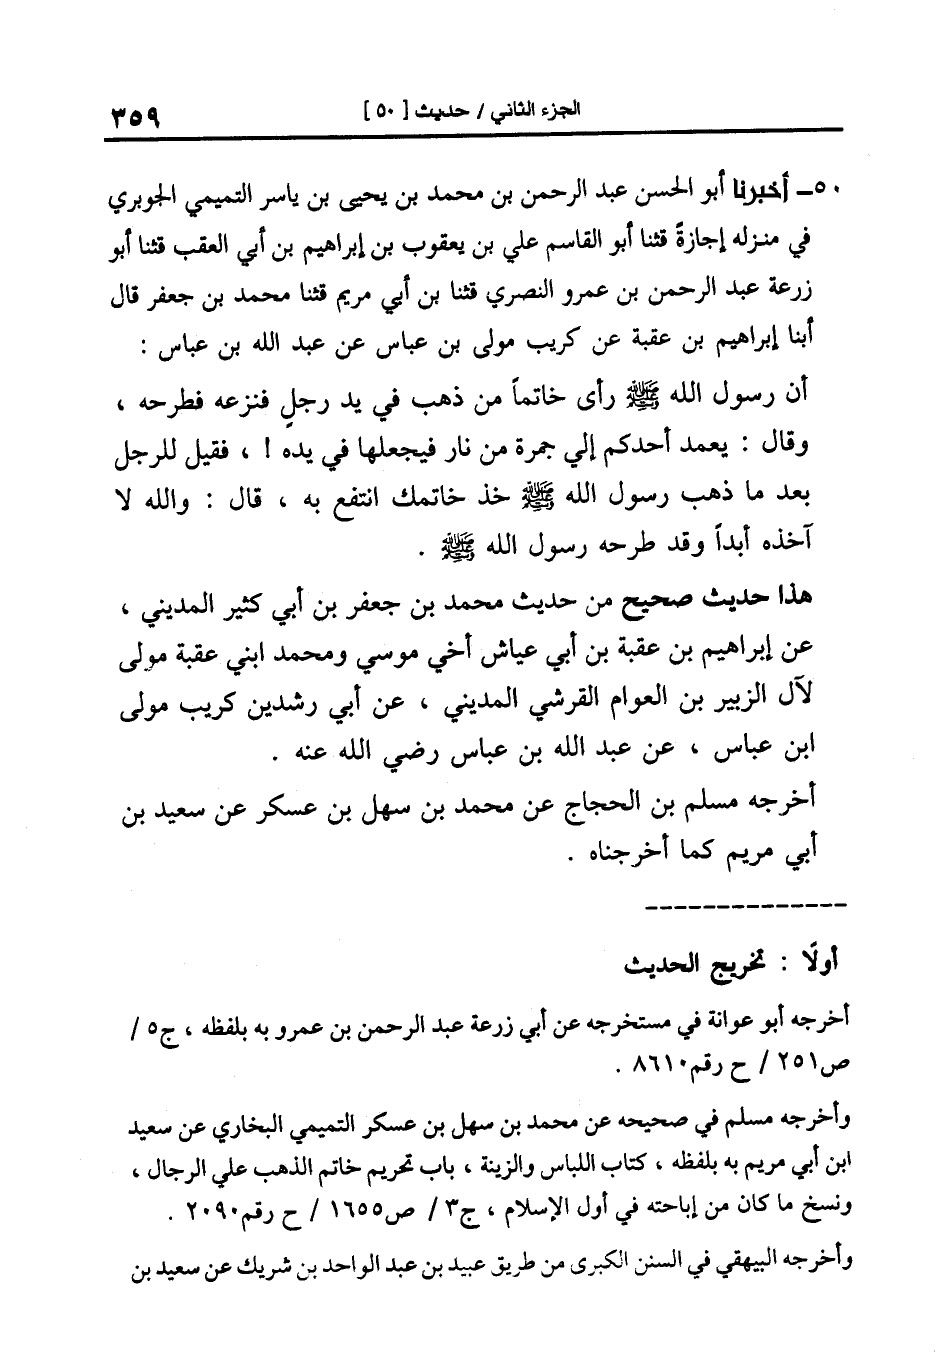 الجزء الثاني / حديث [ ٥٠ ] ٣٥٩
٥٠ـ أخبرنا أبو الحسن عبد الرحمن بن محمد بن يحيى بن ياسر التميمي الجوبري
في منزله إجازةً قثنا أبو القاسم علي بن يعقوب بن إبراهيم بن أبي العقب قثنا أبو
زرعة عبد الرحمن بن عمرو النصري قثنا بن أبي مريم قثنا محمد بن جعفر قال
أبنا إبراهيم بن عقبة عن كريب مولى بن عباس عن عبد الله بن عباس :
أن رسول الله ﷺ رأى خاتماً من ذهب في يد رجلٍ فنزعه فطرحه ،
وقال : يعمد أحدكم إلي جمرة من نار فيجعلها في يده ! ، فقيل للرجل
بعد ما ذهب رسول الله ﷺ خذ خاتمك انتفع به ، قال : والله لا
آخذه أبداً وقد طرحه رسول الله ﷺ .
هذا حديث صحيح من حديث محمد بن جعفر بن أبي كثير المديني ،
عن إبراهيم بن عقبة بن أبي عياش أخي موسي ومحمد ابني عقبة مولى
لآل الزبير بن العوام القرشي المديني ، عن أبي رشدين كريب مولى
ابن عباس ، عن عبد الله بن عباس رضي الله عنه .
أخرجه مسلم بن الحجاج عن محمد بن سهل بن عسكر عن سعيد بن
أبي مريم كما أخرجناه .
--------------
أولًا : تخريج الحديث
أخرجه أبو عوانة في مستخرجه عن أبي زرعة عبد الرحمن بن عمرو به بلفظه ، ج٥ /
ص٢٥١ / ح رقم٨٦١٠ .
وأخرجه مسلم في صحيحه عن محمد بن سهل بن عسكر التميمي البخاري عن سعيد
ابن أبي مريم به بلفظه ، كتاب اللباس والزينة ، باب تحريم خاتم الذهب علي الرجال ،
ونسخ ما كان من إباحته في أول الإسلام ، ج٣ / ص١٦٥٥ / ح رقم٢٠٩٠ .
وأخرجه البيهقي في السنن الكبرى من طريق عبيد بن عبد الواحد بن شريك عن سعيد بن